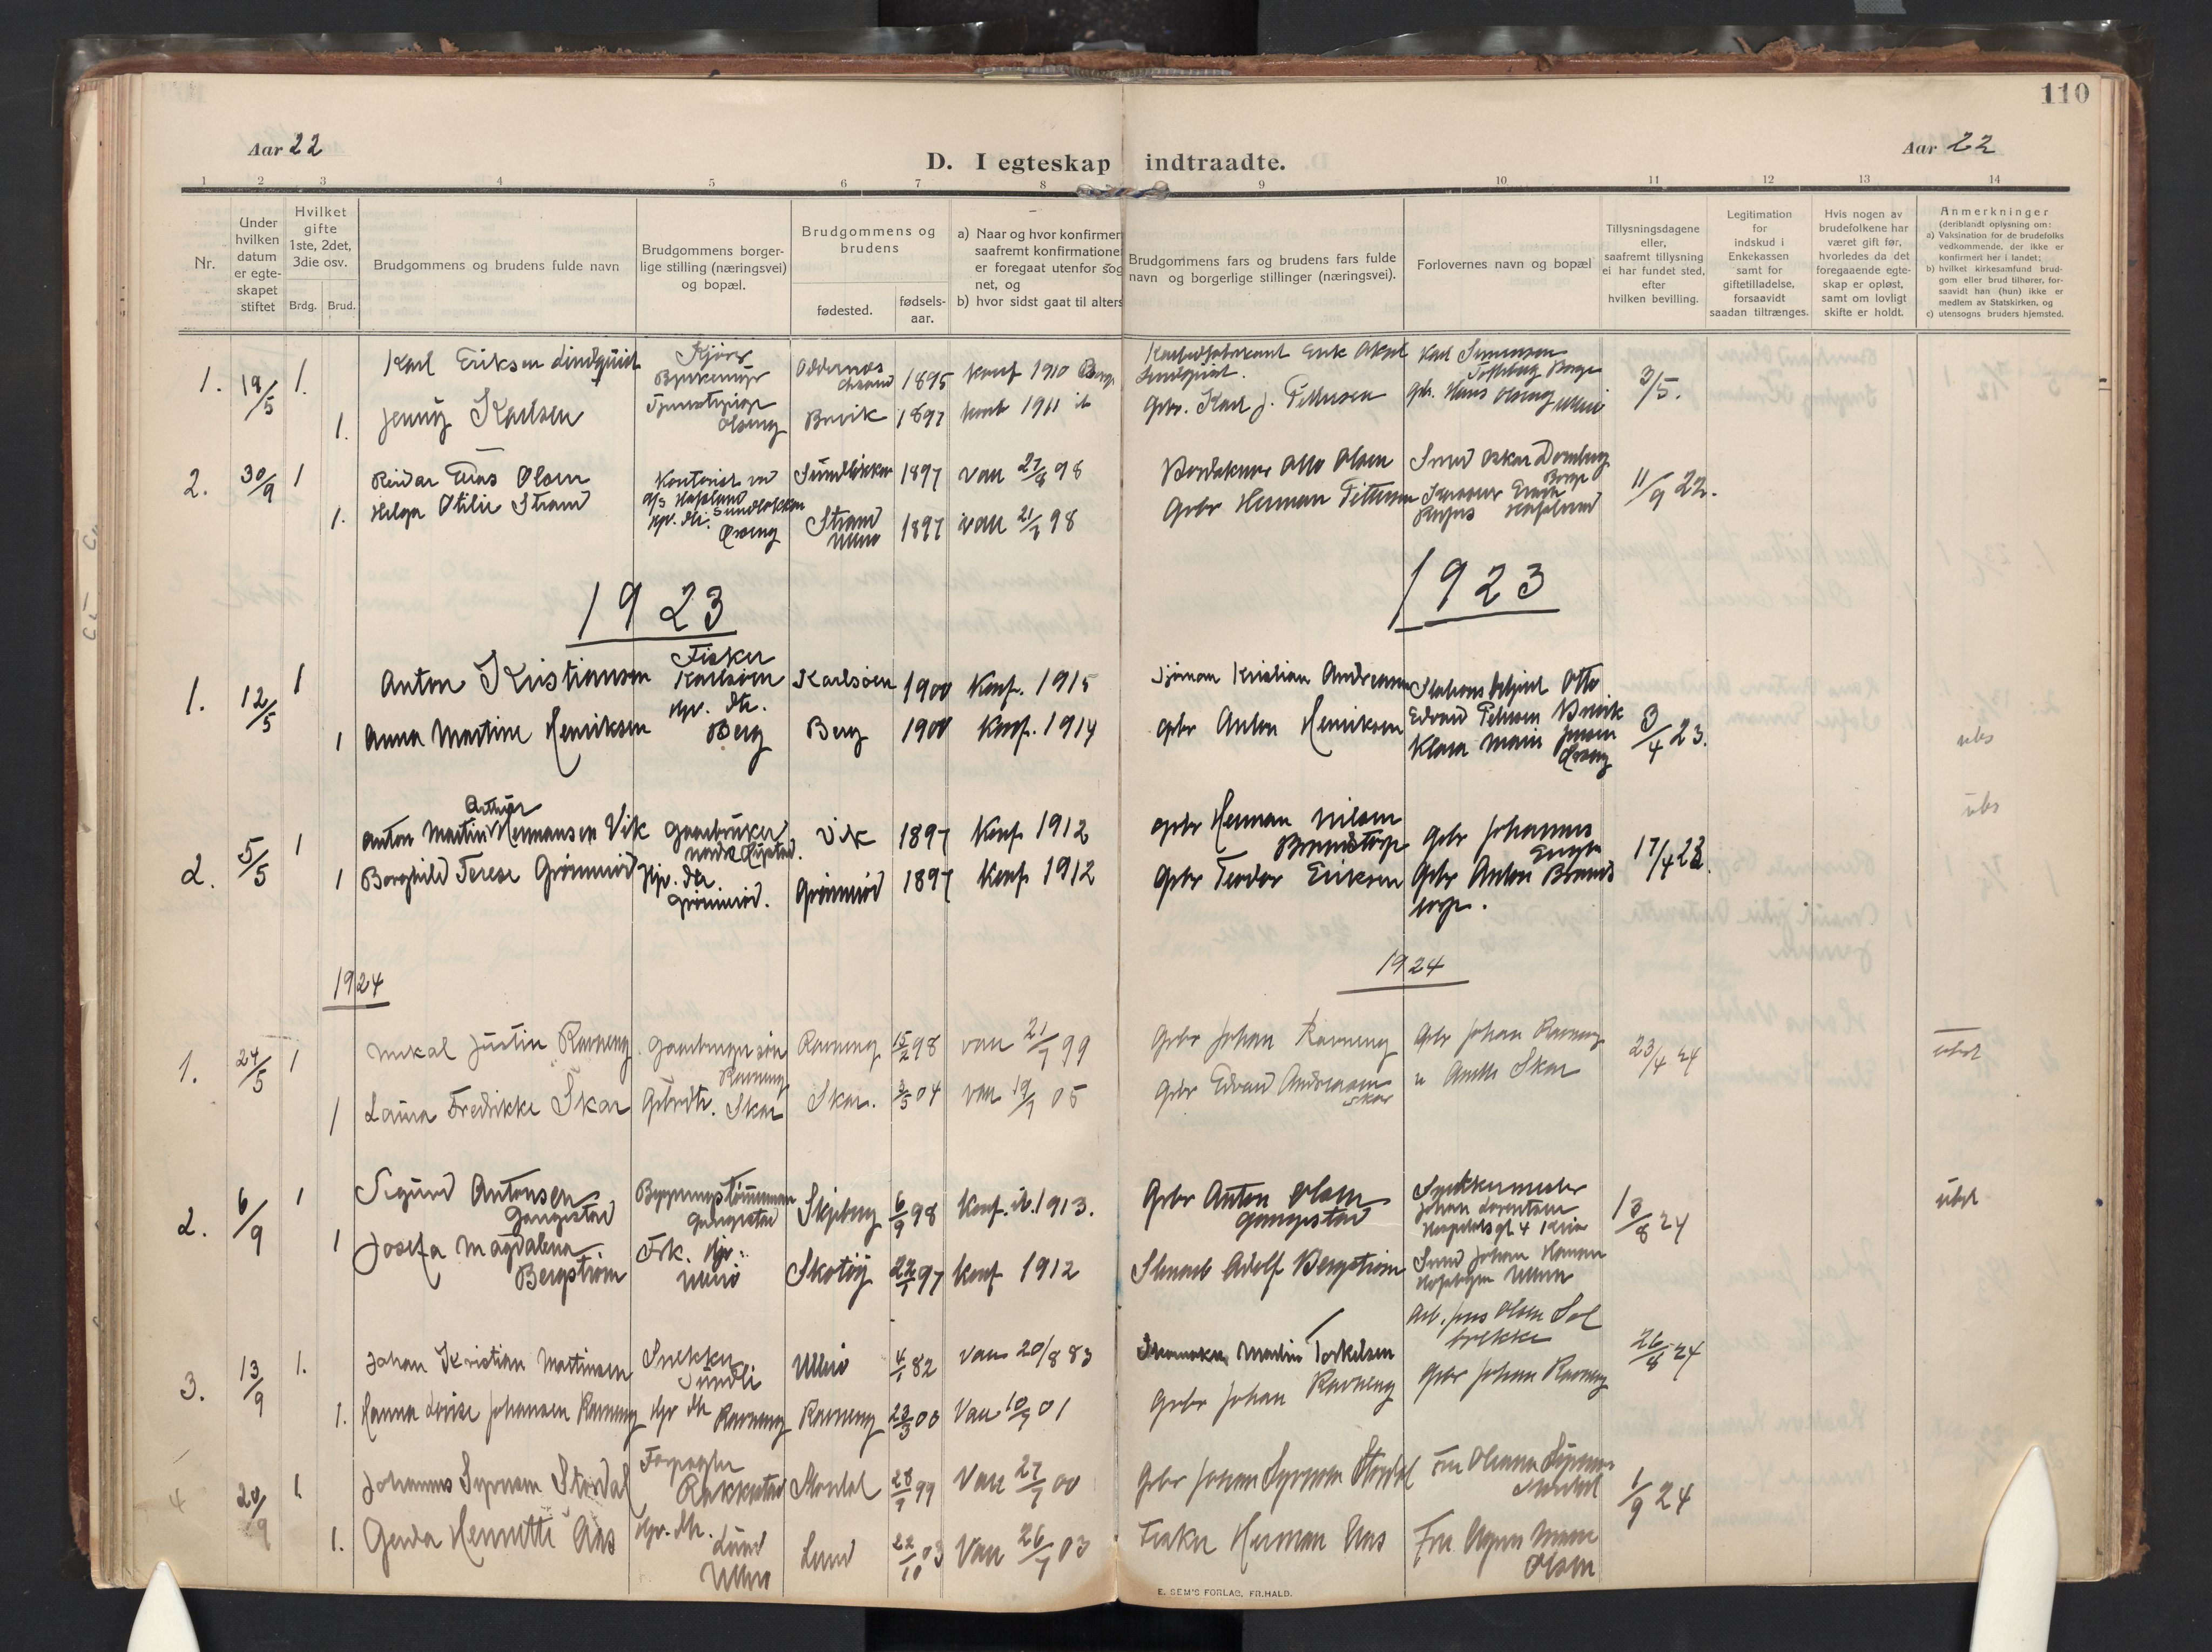 110
Aar 22
Aar 22
D. I egteskap indtraadte.
1 2 3 4 5 6 7 8 9 10 11 12 13 14
Nr.
Under hvilken datum er egte-skapet stiftet
Hvilket gifte 1ste, 2det, 3die osv.
Brdg. Brud.
Brudgommens og brudens fulde navn
Brudgommens borger-lige stilling (næringsvei) og bopæl.
Brudgommens og brudens
fødested.
fødsels-aar.
a) Naar og hvor konfirmer
saafremt konfirmatione
er foregaat utenfor sog
net, og
b) hvor sidst gaat til alters
Brudgommens fars og brudens fars fulde
navn og borgerlige stillinger (næringsvei).
Forlovernes navn og bopæl
Tillysningsdagene
eller,
saafremt tillysning
ei har fundet sted,
efter
hvilken bevilling.
Legitimation
for
indskud i
Enkekassen
samt for
giftetilladelse,
forsaavidt
saadan tiltrænges.
Hvis nogen av
brudefolkene har
været gift før,
hvorledes da det
foregaaende egte-
skap er opløst,
samt om lovligt
skifte er holdt.
Anmerkninger
(deriblandt oplysning om:
a) Vaksination for de brudefolks
vedkommende, der ikke er
konfirmeri her i landet;
b) hvilket kirkesamfund brud-
gom eller brud tilhører, for-
saavidt han (hun) ikke er
medlem av Statskirken, og
c) utensogns bruders hjemsted.
1. 19/5 1. Karl Eriksen Lindquist Oddernes 1895 konf 1910 Borge
Lindquist. Karl Simensen 3/5.
1. Jenny Karlsen Brevik 1897 konf 1911
Gbr. Karl J. Pettersen
2. 30/9 1 Reidar Elias Olsen Kontorist ved A/S Hafslund Sundløkken 1897 vac 27/8 98
Otto Olsen Smed Oskar Domberg Borge 11/9 22.
1. Helga Otilie Strand hjv. dtr. Strand Ullerø 1897 vac 21/7 98
Gbr Herman Pettersen
1923
1923
1. 12/5 1 Anton Kristiansen Fisker Karlsøen Karlsøen 1900 Konf. 1915
Kristian Andreasen Otto
Edvard Petersen Brevik 3/4 23.
1 Anna Martine Henriksen hjv. dtr. Berg Berg 1900 Konf. 1914
gbr Anton Henriksen Klara Marie Jensen ubs
2. 5/5 1 Anton Martin Arthur Hermansen Vik Gaardbruker Vik 1897 Konf 1912
gbr Herman Nilsen Brandstorp gbr Johannes 17/4 23. ubs
1 Borghild Terese Grønnerød Hjv. dtr. Grønnerød. Grønnerød 1897 Konf 1912
gbr Teodor Eriksen Gbr Anton Brands torp.
1924
1924
1. 24/5 1 Mikal Justin Ravneng Gaardbruger søn Ravneng Ravneng 15/2 98 vac 21/7 99
Gbr Johan Ravneng Gbr Johan Ravneng 23/4 24 ubet
1 Laura Fredrikke Skar Gbrdtr. Skar Skar. 3/5 04 vac 19/7 05
Gbr Edvard Andreassen Skar Skar
2. 6/9 1 Sigurd Antonsen Gangestad Bygningstømmerman Gangestad Skjeberg 6/9 98 Konf. ib. 1913.
Gbr Anton Olsen Gangestad Snekkermester Johan Lorentsen 13/8 24 ubet
1 Josefa Magdalena Bergstrøm Frk. hjv. Ullerø Skotøy 22/1 97 Konf 1912
Adolf Bergstrøm Smed Johan Hansen Ullerø
3. 13/9 1. Johan Kristian Martinsen Snekker Sundli Ullerø 4/1 82 Vac 20/8 83
Martin Torkelsen Arb. Jens Olsen Solbrekke 26/8 24
1. Hanna Lovise Johansen Ravneng Hjv dtr Ravneng Ravneng 23/3 00 Vac 10/9 01
Gbr Johan Ravneng Gbr Johan Ravneng
4 20/9 1. Johannes Syversen Stordal Forpagter Rakkestad Stordal 28/7 99 Vac 27/7 00
Gbr Johan Syversen Stordal Fru Stordal 1/9 24
1. Gerda Henriette Aas Hjv. dtr. Lund Ullerø Lund 22/10 03 Vac 26/7 03
Fisker Herman Aas Fru Agnes Marie Olsen
E. SEM'S FORLAG, FR.HALD.